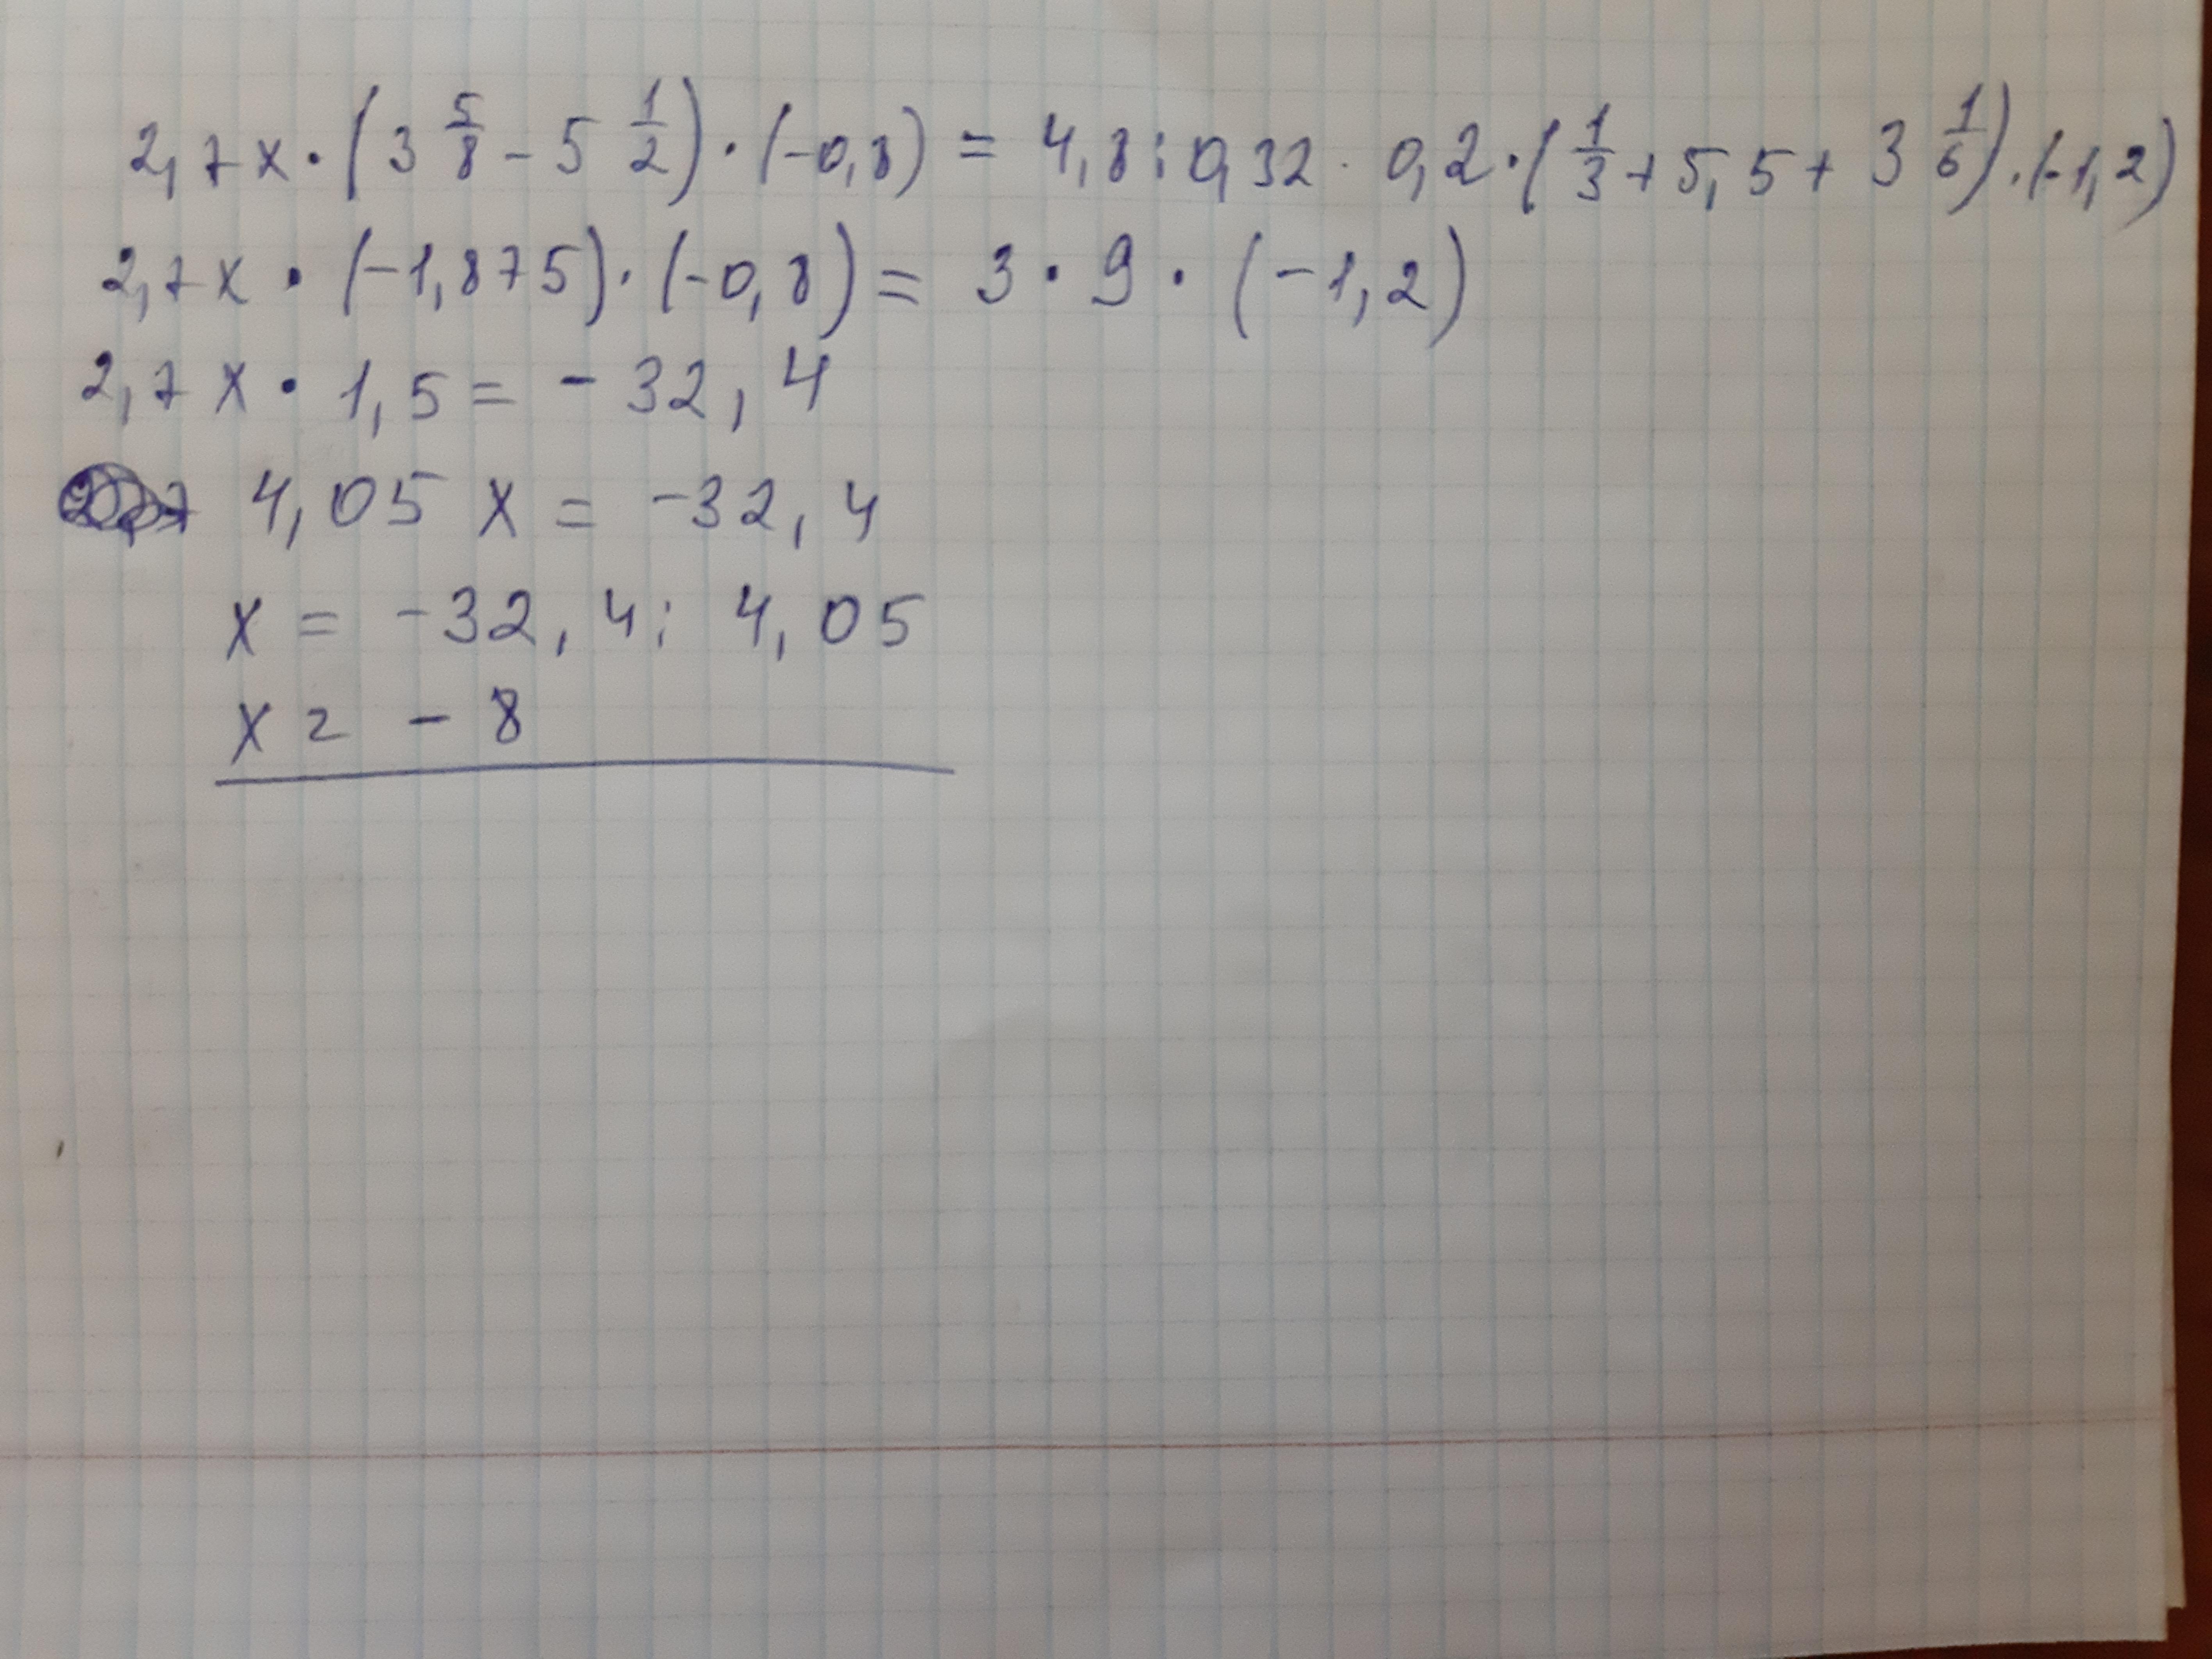 2,7x · (3 5/8 - 5 1/2) · (-0,8) = 4,8 : 0,32 · 0,2 · (1/3 + 5,5 + 3 1/6) · (-1,2)
2,7x · (-1,875) · (-0,8) = 3 · 9 · (-1,2)
2,7x · 1,5 = -32,4
4,05 x = -32,4
x = -32,4 : 4,05
x = -8